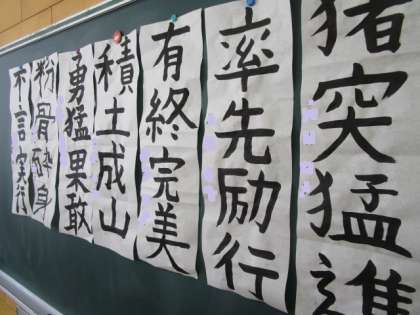 猪突猛進
率先励行
有終完美
積土成山
勇猛果敢
粉骨砕身
不言実行